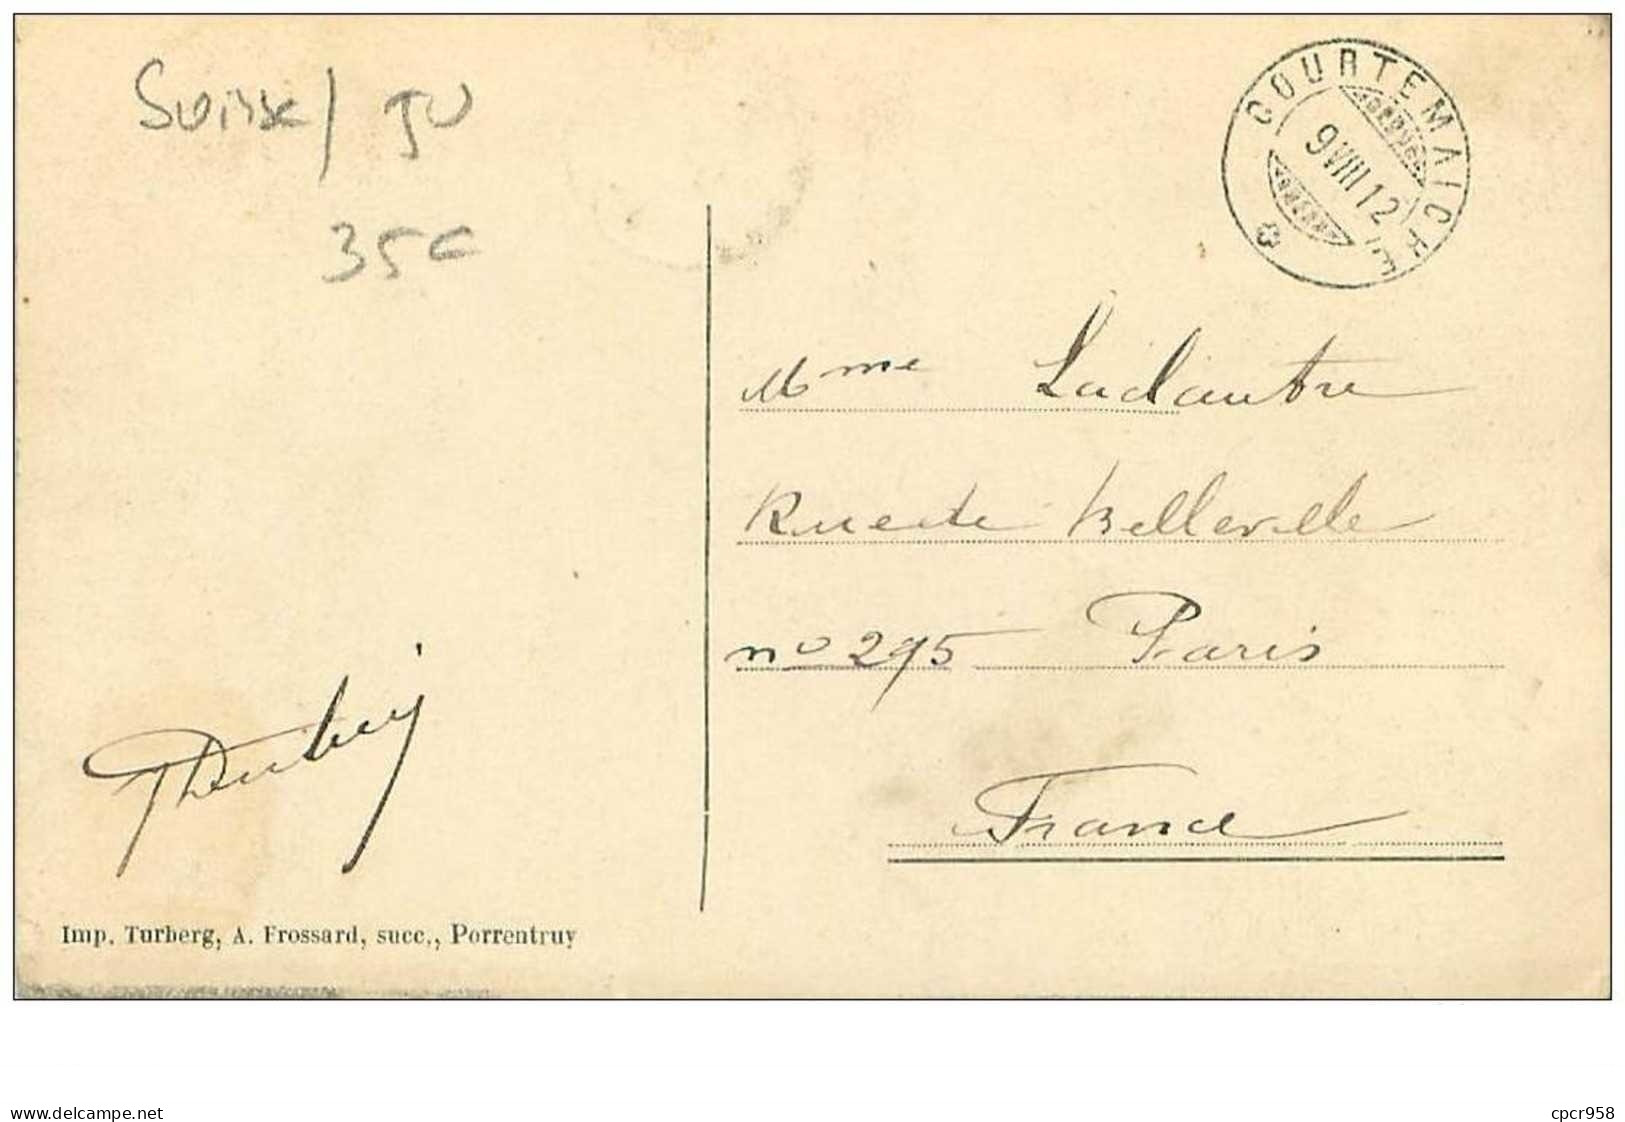 Suisse / JU
35 €
COURTEMAICHE
9 VIII 12
Mme Ladautre
Rue de Belleville
no 295 Paris
France
Imp. Turberg, A. Frossard, succ., Porrentruy
www.delcampe.net
cpcr958